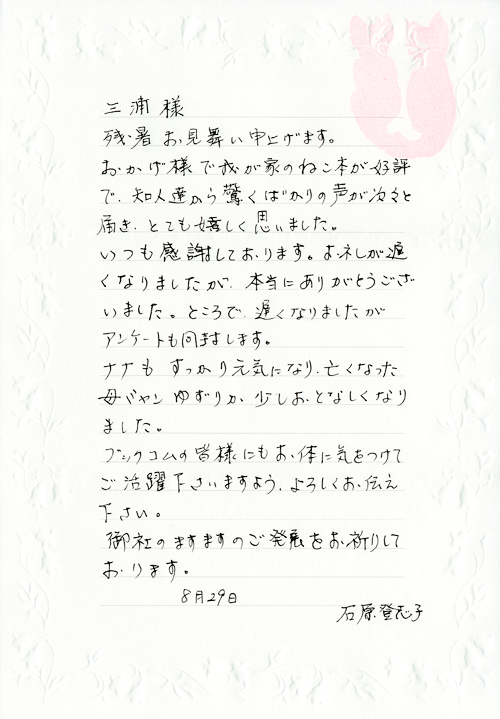 三浦様
残暑お見舞い申上げます。
おかげ様で我が家のねこ本が好評
で、知人達から驚くばかりの声が次々と
届き、とても嬉しく思いました。
いつも感謝しております。お礼しが遅
くなりましたが、本当にありがとうござ
いました。ところで、遅くなりましたが
アンケートも同封します。
ナナも すっかり元気になり、亡くなった
母ジャン ゆずりか、少しおとなしくなり
ました。
ブックコムの皆様にもお体に気をつけて
ご活躍下さいますよう、よろしくお伝え
下さい。
御社のますますのご発展をお祈りして
おります。
8月29日
石原登志子